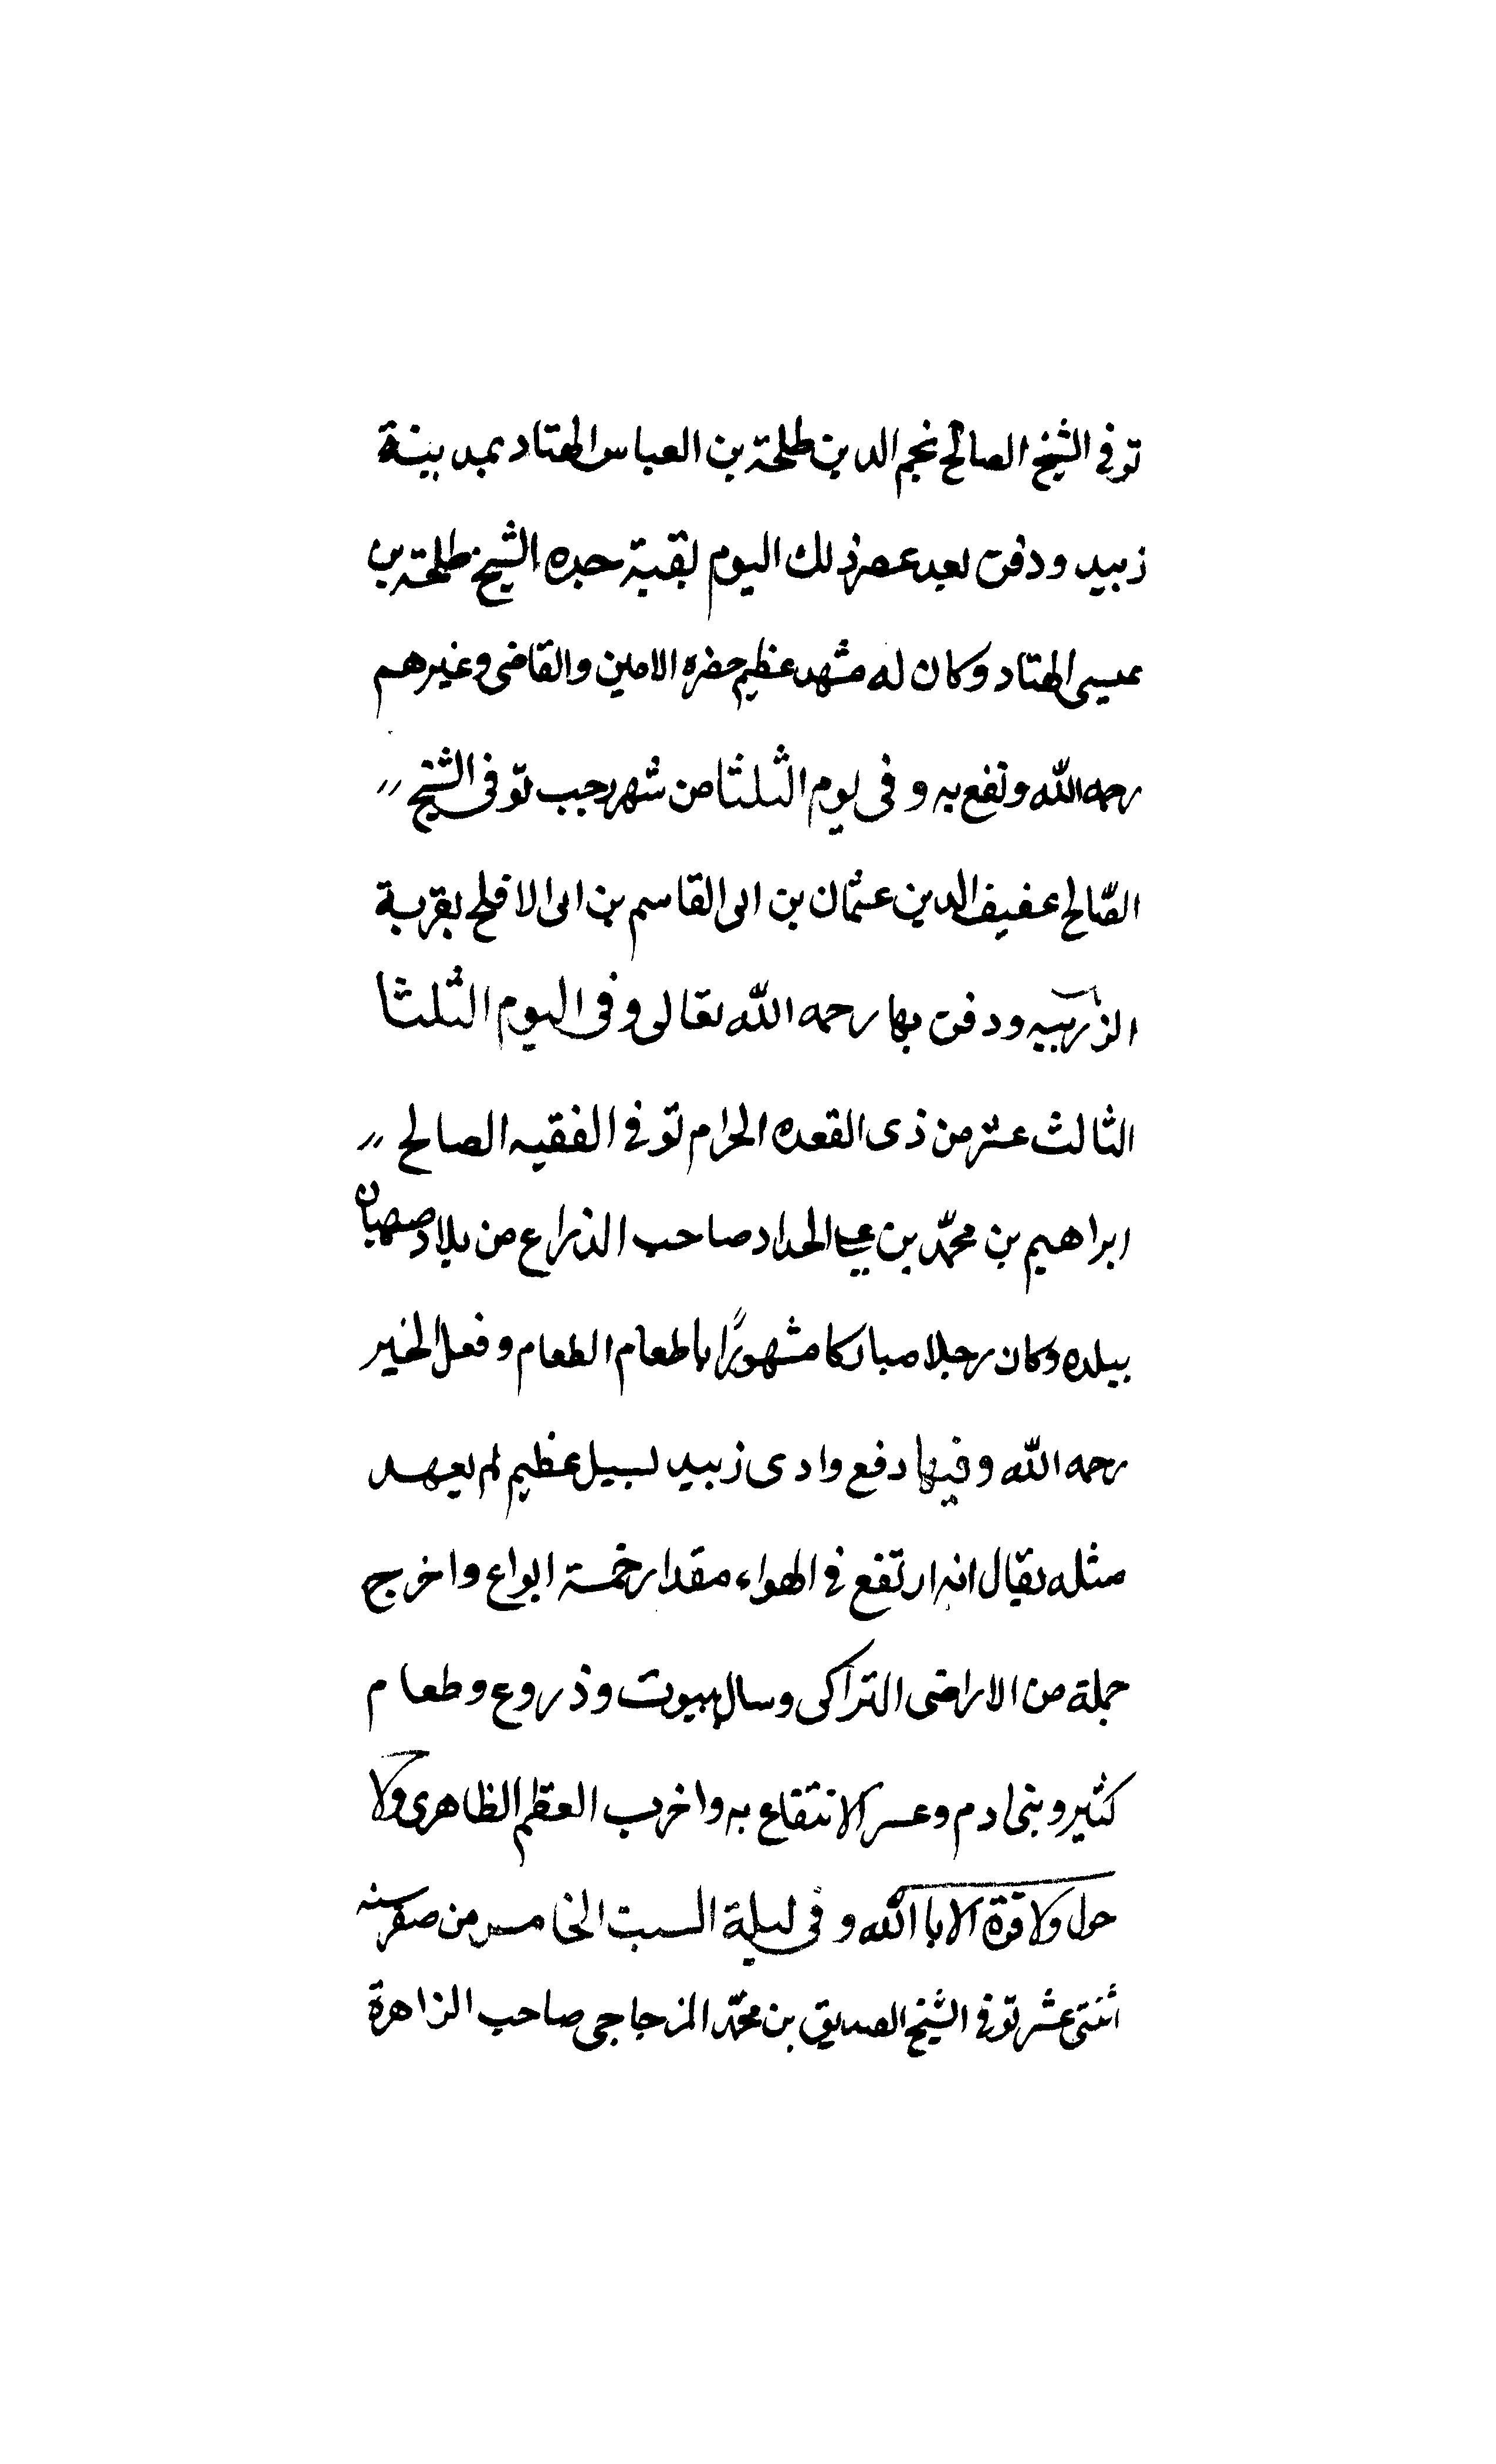 توفي الشيخ الصالح نجم الدين طلحة بن العباس الهتاد بمدينة
زبيد ودفن بعد عصر ذلك اليوم بقبة جده الشيخ طلحة بن
عيسى الهتاد وكان له مشهد عظيم حضره الامين والقاضى وغيرهم
رحمه الله ونفع به وفى يوم الثلثا من شهر رجب توفى الشيخ
الصّالح عفيف الدين عثمان بن ابى القاسم بن ابى الافلح بقرية
ودفن بها رحمه الله تعالى وفى اليوم الثلثا
الثالث عشر من ذى القعده الحرام توفي الفقيه الصالح
ابراهيم بن محمّد بن يحيى الحداد صاحب الذراع من بلاد صهبان
ببلده وكان رجلا مباركا مشهورًا باطعام الطعام وفعل الخير
رحمه الله وفيها دفع وادى زبيد بسيل عظيم لم يعهد
مثله يقال انه ارتفع في الهواء مقدار خمسة ابواع واخرج
جملة من الاراضى التراكى وسال ببيوت وذروع وطعام
كثير وبنى ادم وعسر الانتفاع به واخرب العقم الظاهرى ولا
حول ولا قوة الا باالله وفى ليلة السبت الخامس من صفر سنه
اثنتى عشر توفي الشيخ الصديق بن محمّد المزجاجى صاحب الزاهرة